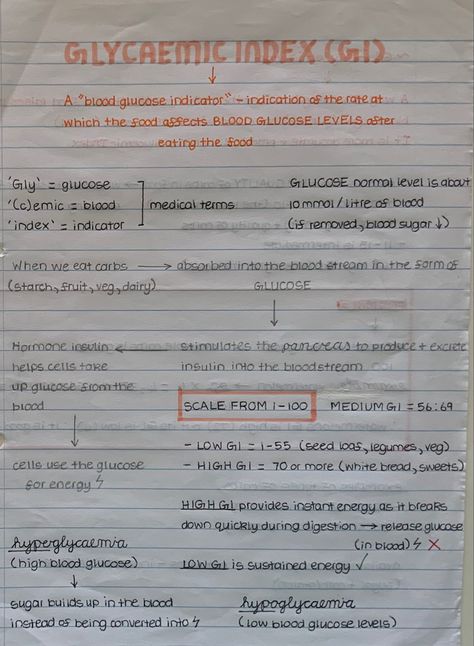 GLYCAEMIC INDEX (GI)
↓
A "blood glucose indicator" - indication of the rate at
which the food affects BLOOD GLUCOSE LEVELS after
eating the food
'Gly' = glucose
'(c)emic = blood
'index' = indicator
medical terms
GLUCOSE normal level is about
10 mmol / litre of blood
(if removed, blood sugar ↓)
When we eat carbs → absorbed into the blood stream in the form of
(starch, fruit, veg, dairy)
GLUCOSE
↓
stimulates the pancreas to produce + excrete
insulin into the bloodstream
←
Hormone insulin
helps cells take
up glucose from the
blood
↓
cells use the glucose
for energy ϟ
SCALE FROM 1-100
MEDIUM GI = 56:69
- LOW GI = 1-55 (seed loaf, legumes, veg)
- HIGH GI = 70 or more (white bread, sweets)
HIGH GI provides instant energy as it breaks
down quickly during digestion → release glucose
(in blood) ϟ X
LOW GI is sustained energy ✓
hyperglycaemia
(high blood glucose)
↓
sugar builds up in the blood
instead of being converted into ϟ
hypoglycaemia
(low blood glucose levels)